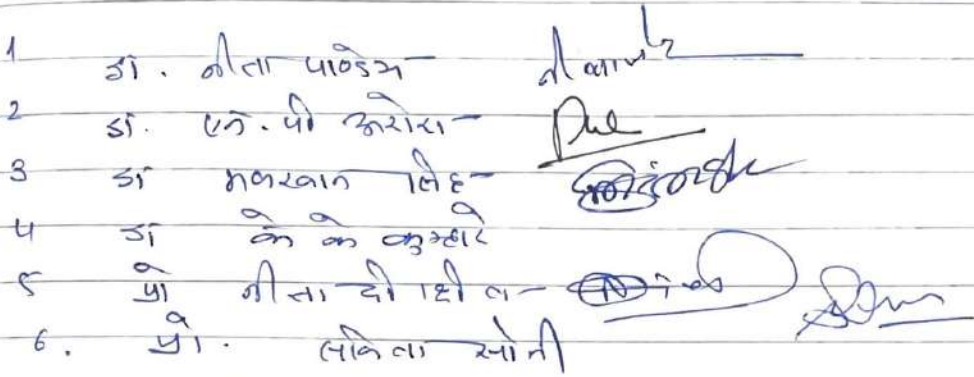 1 डॉ. नीता पाण्डेय
2 डॉ. एन. पी अरोरा
3 डॉ सिंह
4 डॉ के के कुम्हारे
5 प्रो नीता दीक्षित
6. प्रो. ललिता सोनी